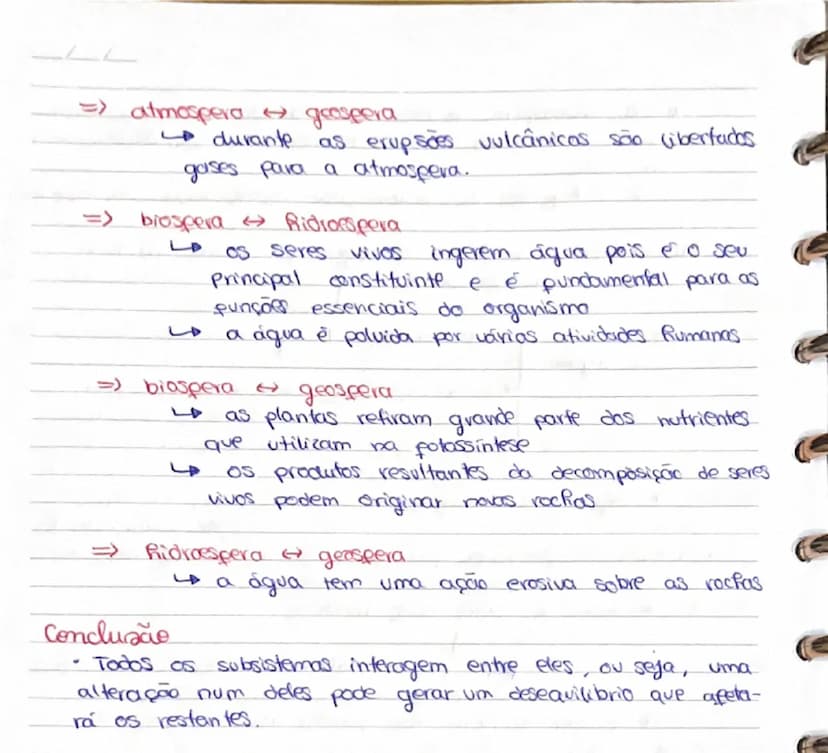 => atmosfera ↔ geosfera
↳ durante as erupsões vulcânicas são libertados
gases para a atmosfera.
=> biosfera ↔ hidrosfera
↳ os seres vivos ingerem água pois é o seu
principal constituinte e é fundamental para as
funções essenciais do organismo
↳ a água é poluida por várias atividades humanas
=> biosfera ↔ geosfera
↳ as plantas retiram grande parte dos nutrientes
que utilizam na fotossíntese
↳ os produtos resultantes da decomposição de seres
vivos podem originar novas rochas
=> hidrosfera ↔ geosfera
↳ a água tem uma ação erosiva sobre as rochas
Conclusão
· Todos os subsistemas interagem entre eles, ou seja, uma
alteração num deles pode gerar um desequilibrio que afeta-
rá os restantes.